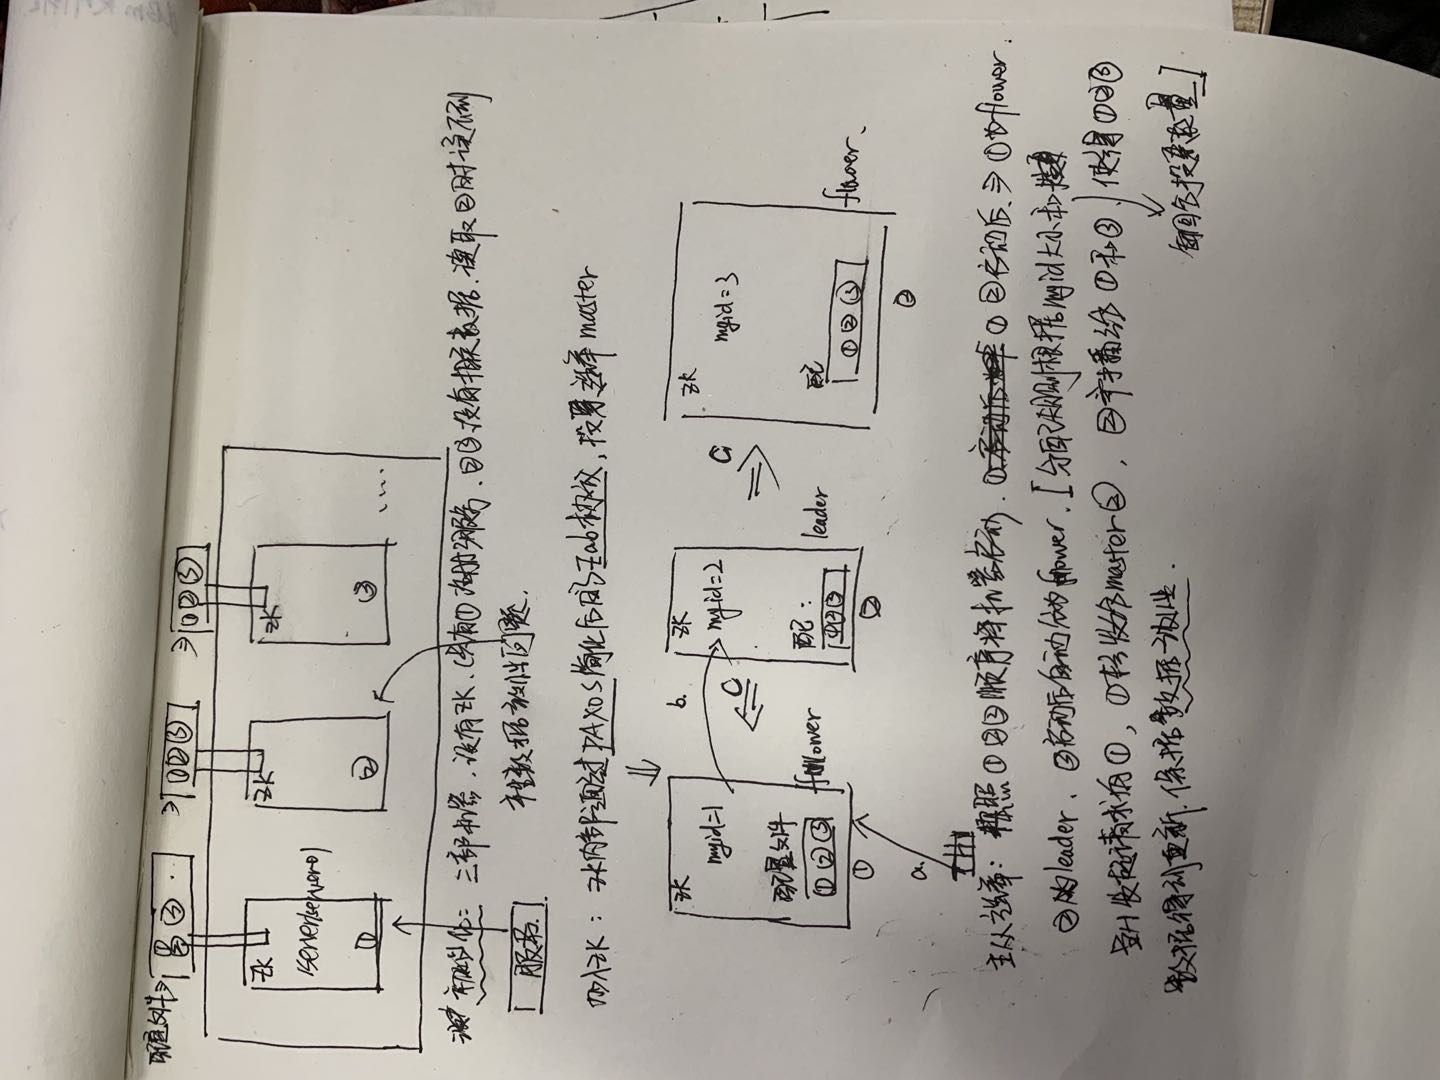 配置文件⇒ ③ ..
⇒ ①②③
⇒ ①②③
ZK
/server/server01
①
ZK
②
ZK
③
....
初始化: 三部机器,没有ZK,(只有① 服务,②③没有相关数据,读取②时读不到
产生数据 性问题.
服务.
加入ZK: ZK内部通过PAXOS简化后的Zab协议,投票选举master
ZK
myid=1
配置文件
①②③
follower
①
a.
b.
C
ZK
myid=2
配:
①②③
leader
②
C
ZK
myid=3
配
①②③
flower.
②
主从选举: 按照①②③顺序将机器启动. ①启动后 ① ②启动后 ⇒ ①为flower.
②为leader, ③启动后自动分为flower. [分配规则根据myid大小和
发起请求向①, ①转发给master②, ②广播给①和③, 使得①②③
数据得到更新.保证数据一致性.
每回合投票数量]